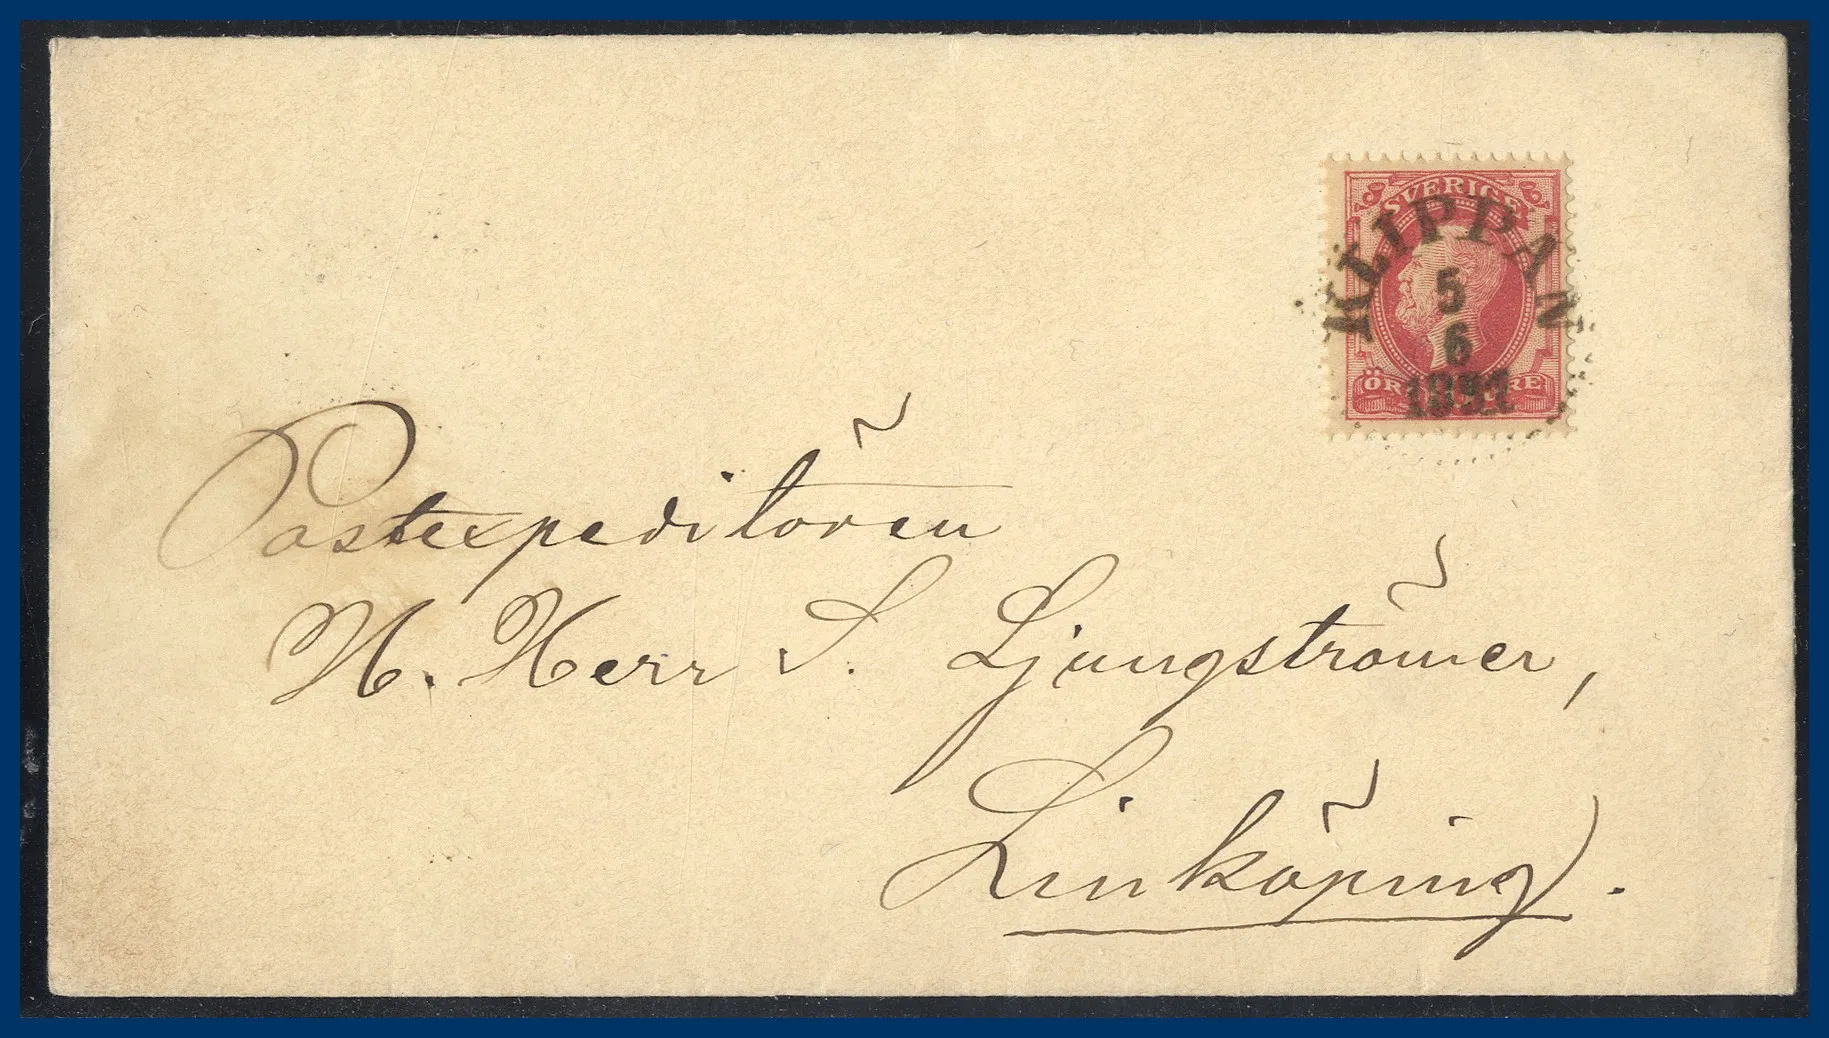 SVERIGE
KLIPPAN
5
6
1891
ÖRE ÖRE
Postexpeditören
H. Herr S. Ljungströmer,
Linköping.